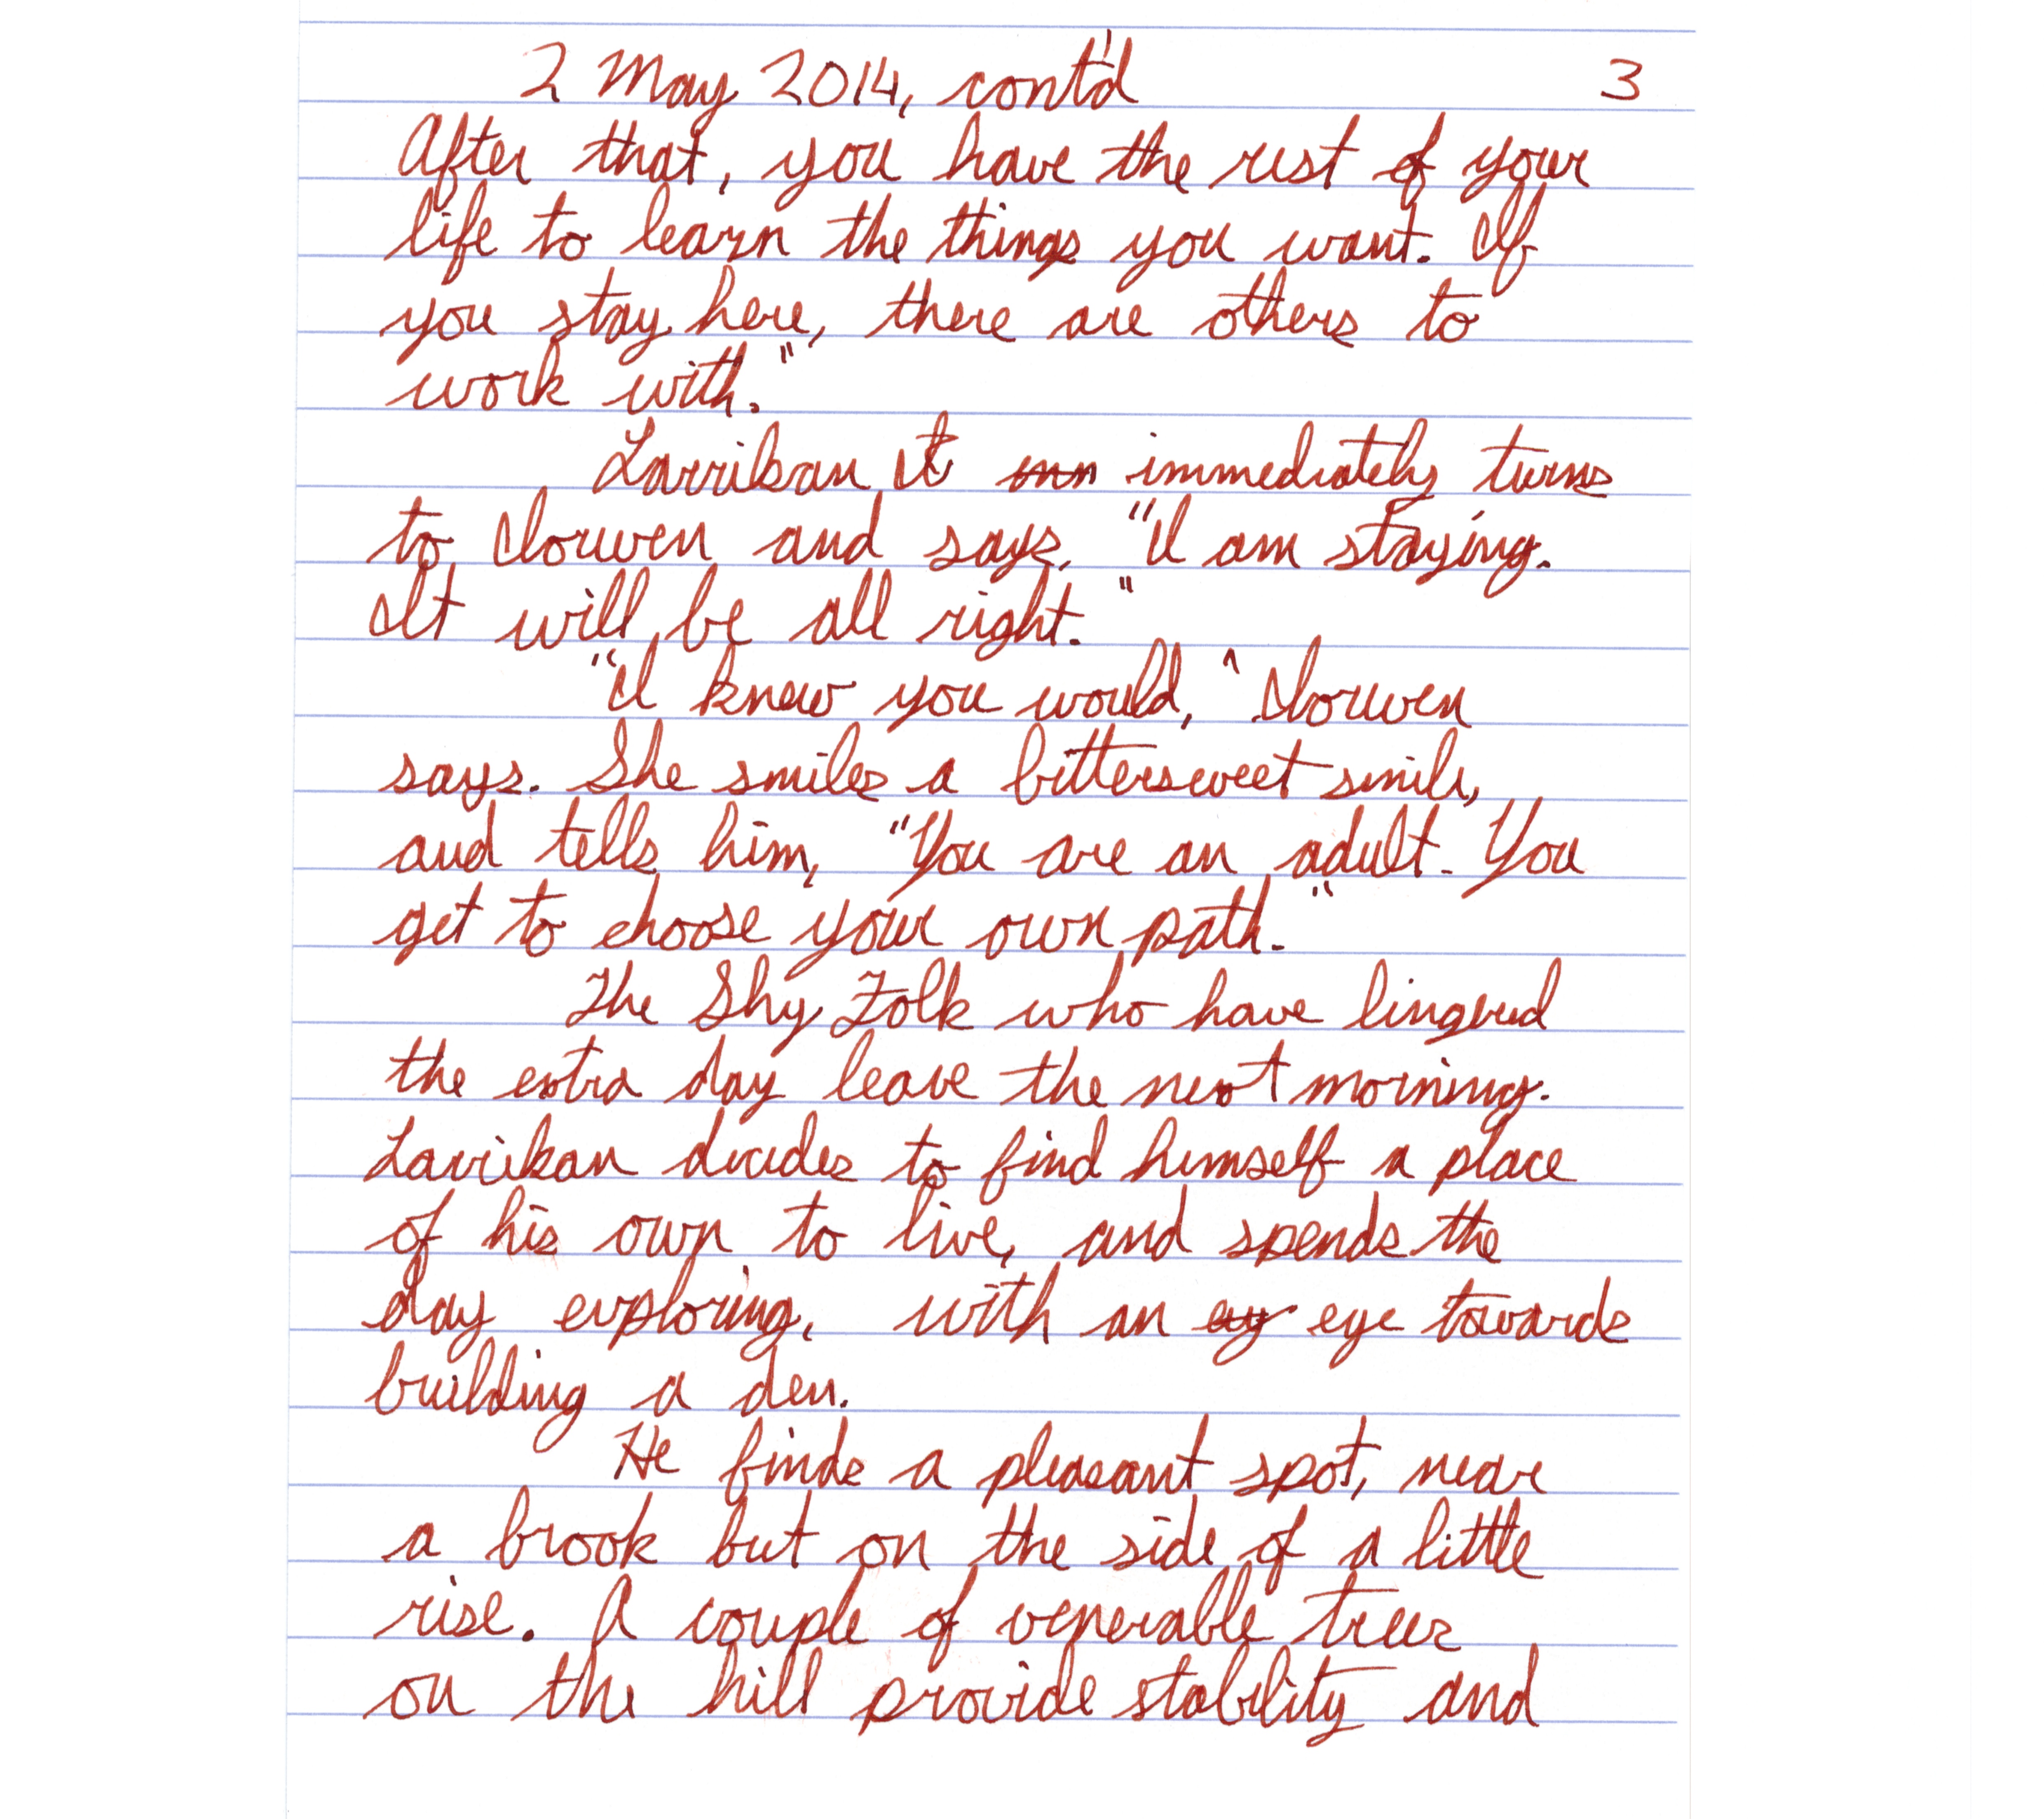 2 May 2014, cont'd 3
After that, you have the rest of your
life to learn the things you want. If
you stay here, there are others to
work with."
Larrikan immediately turns
to Iorwen and says, "I am staying.
It will be all right."
"I knew you would," Iorwen
says. She smiles a bittersweet smile,
and tells him, "You are an adult. You
get to choose your own path."
The Shy Folk who have lingered
the extra day leave the next morning.
Larrikan decides to find himself a place
of his own to live, and spends the
day exploring, with an eye towards
building a den.
He finds a pleasant spot, near
a brook but on the side of a little
rise. A couple of venerable trees
on the hill provide stability and